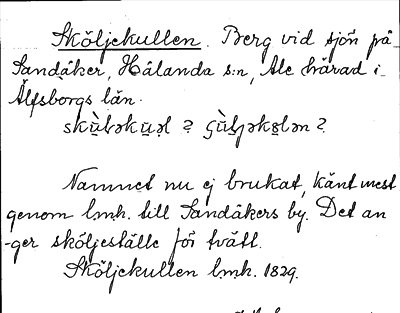 Sköljekullen. Berg vid sjön på
Sandåker, Hålanda s:n, Ale härad i
Älfsborgs län.
Namnet nu ej brukat, känt mest
genom lmh. till Sandåkers by. Det an
-ger sköljeställe för tvätt.
Sköljekullen lmh. 1829.